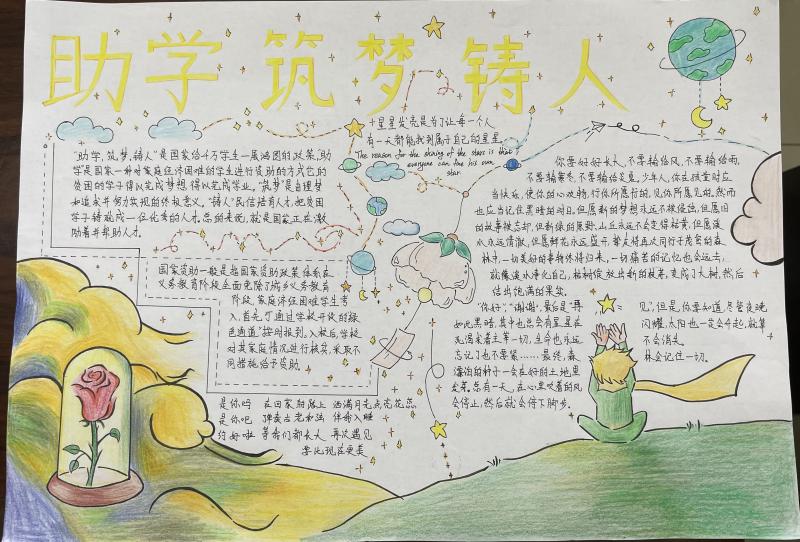 助学筑梦铸人
星星发亮是为了让每一个人
有一天都能找到属于自己的星星
The reason for the shining of the stars is that
everyone can the his own
star
"助学,筑梦,铸人"是国家给千万学生一展鸿图的政策,助
学是国家一种对家庭经济困难的学生进行资助的方式它的
贫困的学子得以完成梦想,得以完成学业。"筑梦"是自理梦
如追求并努力实现的终极意义。"铸人"
铸造成一位优秀的人才。总的来说,就是国家正在激
励着并帮助人才。
国家资助一般是指国家资助政策体系在
义务教育阶段全面免除了城乡义务教育
阶段,家庭经济困难学生考
入,首先,可通过学校开设的绿
色通道"按时报到。入校后,学校
对其家庭情况进行核实,采取不
同措施给予资助。
是你吗
是你吧
约好啦 等我们都长大 再次遇见
你要好好长大,不要输给风,不要输给雨,
不要输寒冬,不要输给炎夏。少年人,你在孤童时应
当快乐,使你的心欢畅,行你所愿行的,见你所愿见的。然而
也应当记住黑暗的时日。但愿新的梦想永远不被侵蚀,但愿旧
的故事被忘却,但新绿的原野,山丘永远不会变得枯黄,但愿溪
水永远清澈,但愿鲜花永远盛开。挚友将再次同行于茂密的森
林中,一切美好的事物终将归来,一切痛苦的记忆也会远去,
就像溪水净化自己,枯树绽放出新的枝芽,变成了大树,然后
结出饱满的果实。
"你好","谢谢",最后是"再
见",但是,你要知道,尽管夜晚
如此黑暗,其中也总会有星星在
闪耀,太阳也一定会升起,就算
不会消失。
忘记了也不要紧……最终,森
林会记住一切。
会停止,然后就会停下脚步。